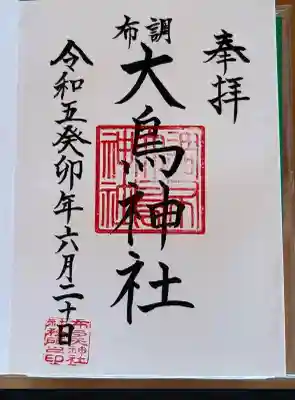 奉拝
調布
大鳥神社
令和五癸卯年六月二十日